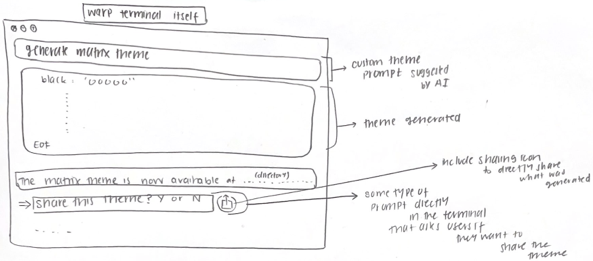 warp terminal itself
generate matrix theme
black : "00000"
EOF
The matrix theme is now available at ...(directory)...
⇒ Share this theme? Y or N
- - - - -
custom theme
prompt suggested
by AI
theme generated
include sharing icon
to directly share
what was
generated
some type of
prompt directly
in the terminal
that asks users if
they want to
share the
theme